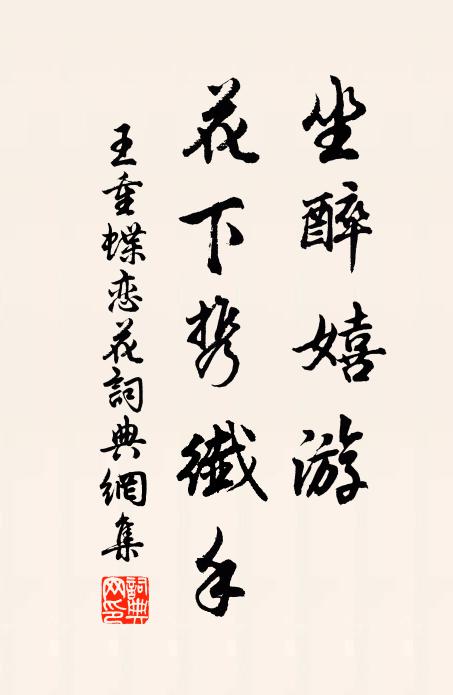 坐醉嬉游
花下携纖手
王重蝶恋花詞典網集
詞典
网印